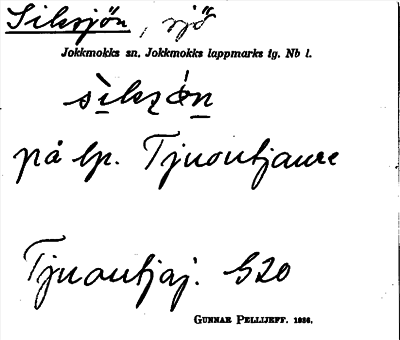 Siksjön, sjö
Jokkmokks sn, Jokkmokks lappmarks tg. Nb l.
på lp. Tjuoutjaure
Tjuoutjaj. 520
GUNNAR PELLIJEFF. 1936.